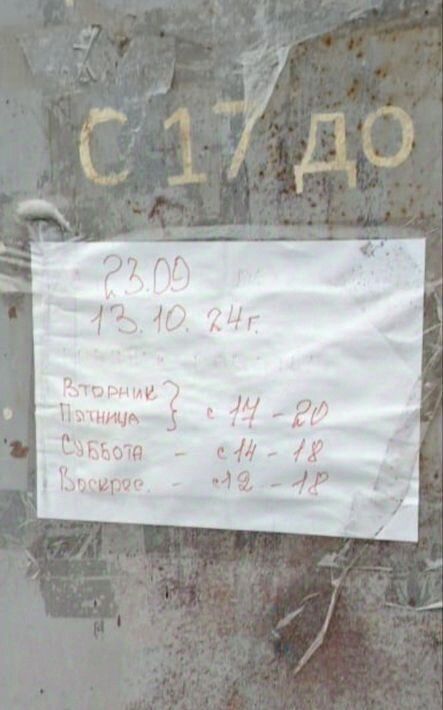 С 17 ДО
23.09
13.10.24г.
Вторник
Пятница } с 17 - 20
Суббота - с 14 - 18
Воскрес. - с 12 - 18